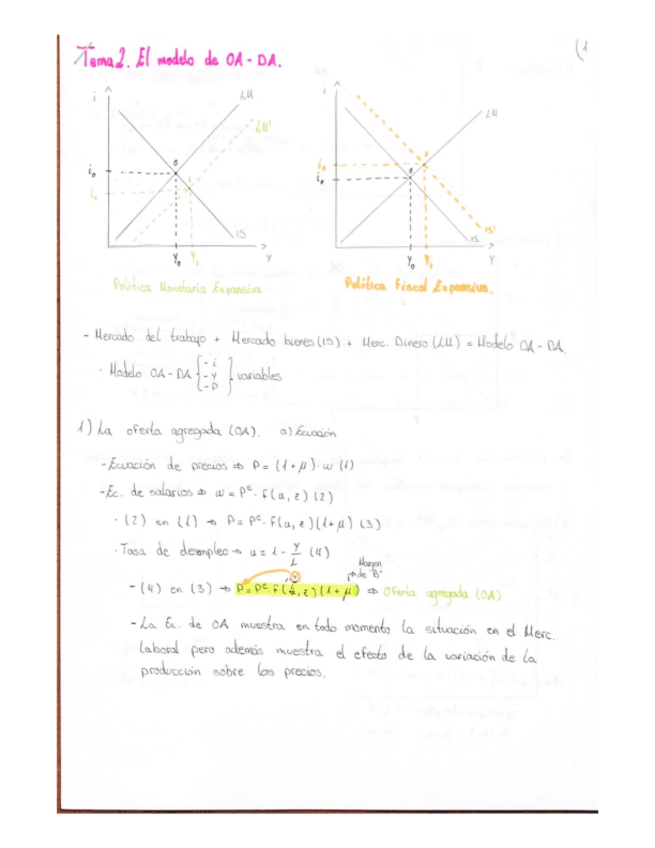 (1
Tema 2. El modelo de OA - DA.
i
LM
LM'
i₀
i₁
0
IS
Y₀ Y₁
Y
Política Monetaria Expansiva
i
LM
i₀
i₀
IS'
IS
Y₀ Y₁
Y
Política Fiscal Expansiva.
- Mercado del trabajo + Mercado bienes (IS) + Merc. Dinero (LM) = Modelo OA - DA.
· Modelo OA - DA { - i - Y - P } variables
1) La oferta agregada (OA). a) Ecuación
- Ecuación de precios ⇒ P = (1 + μ) · w (1)
- Ec. de salarios ⇒ w = Pᵉ · f(u, z) (2)
· (2) en (1) → P = Pᵉ · f(u, z)(1 + μ) (3)
· Tasa de desempleo → u = 1 - Y/L (4)
Margen
de Bº
1 - Y/L
- (4) en (3) → P = Pᵉ · f(u, z)(1 + μ) ⇒ Oferta agregada (OA)
- La Ec. de OA muestra en todo momento la situación en el Merc.
laboral pero además muestra el efecto de la variación de la
producción sobre los precios.